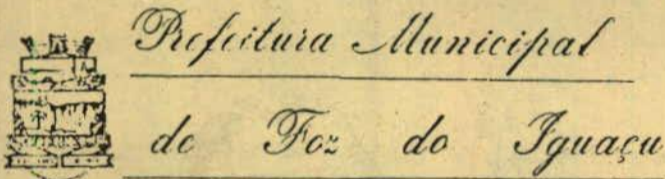 Prefeitura Municipal
de Foz do Iguaçu